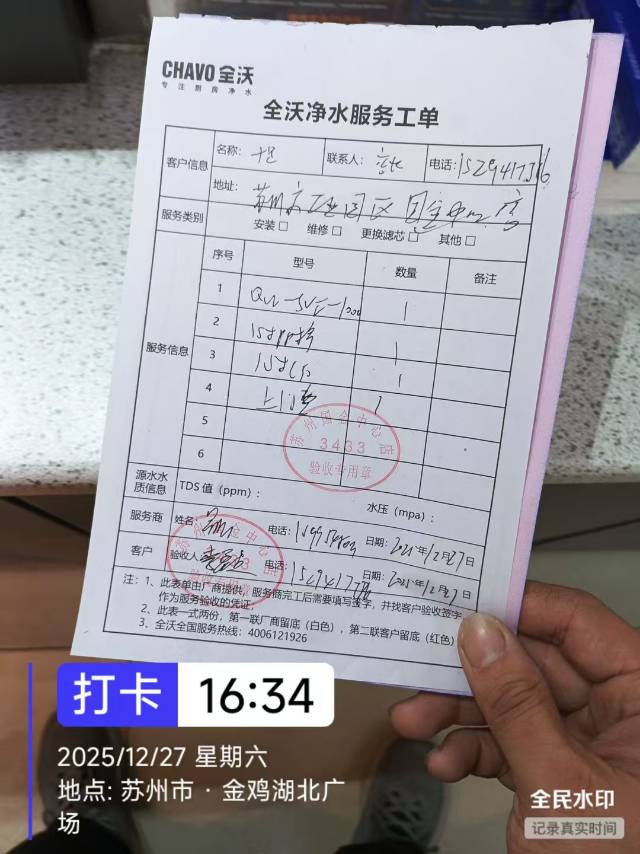 CHAVO 全沃
专注厨房净水
全沃净水服务工单
客户信息
名称：
联系人：
电话：
地址：苏州市工业园区国金中心店
服务类别
安装□ 维修□ 更换滤芯□ 其他□
服务信息
序号 型号 数量 备注
1 1
2 15寸PP棉 1
3 15寸 1
4 上门费 1
5
6
苏州国金中心店
3433
验收专用章
源水水质信息
TDS 值（ppm）： 水压（mpa）：
服务商
姓名： 电话： 日期：2025年12月27日
客户
验收人： 电话： 日期：2025年12月27日
注：1、此表单由厂商提供，服务商完工后需要填写签字，并找客户验收签字
作为服务验收的凭证。
2、此表一式两份，第一联厂商留底（白色），第二联客户留底（红色）
3、全沃全国服务热线：4006121926
打卡 16:34
2025/12/27 星期六
地点: 苏州市 · 金鸡湖北广
场
全民水印
记录真实时间